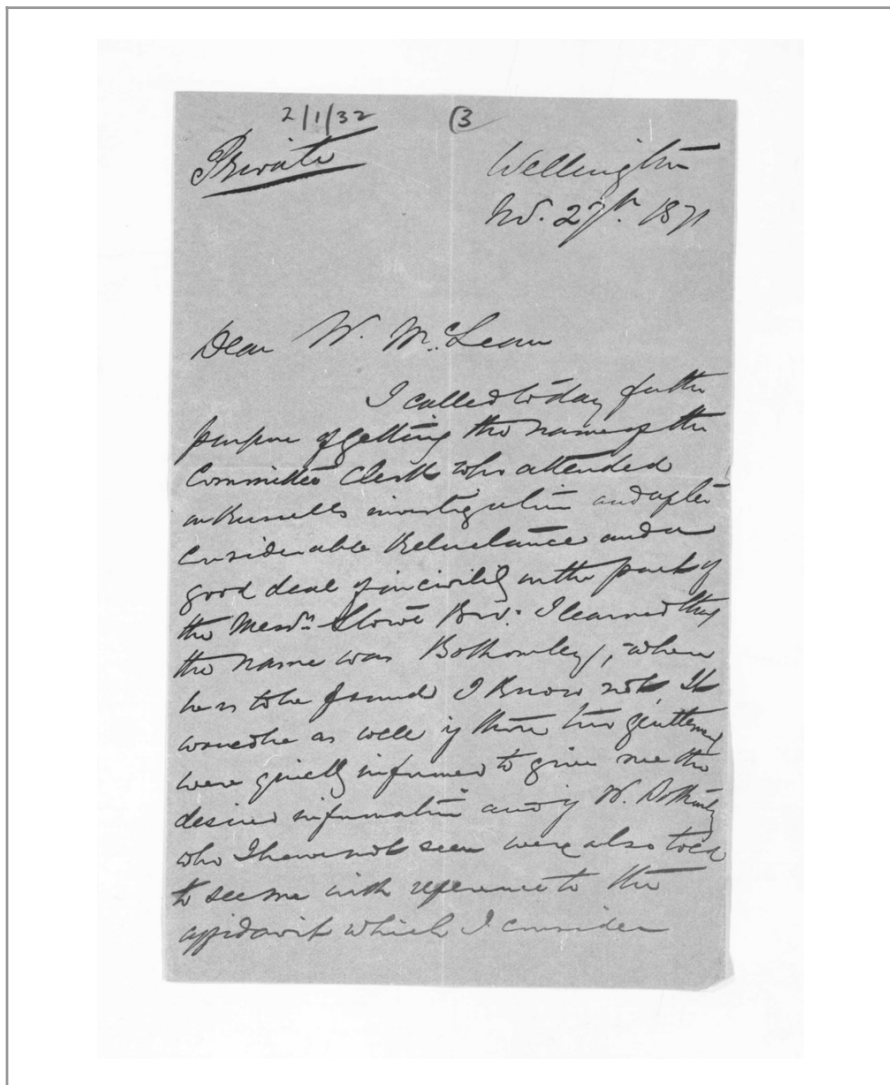 2/1/32
(3
Private
Wellington
Nov. 27th. 1871
Dear Mr. McLean
I called to day for the
purpose of getting the name of the
Committee Clerk who attended
on Russells investigation and after
considerable reluctance and a
good deal of incivility on the part of
the Messrs Stowe Bros: I learned that
the name was Bothamley, where
he is to be found I know not It
would be as well if those two gentlemen
were quietly informed to give me the
desired information and if Mr. Bothamley
who I have not seen were also told
to see me with reference to the
affidavit which I consider